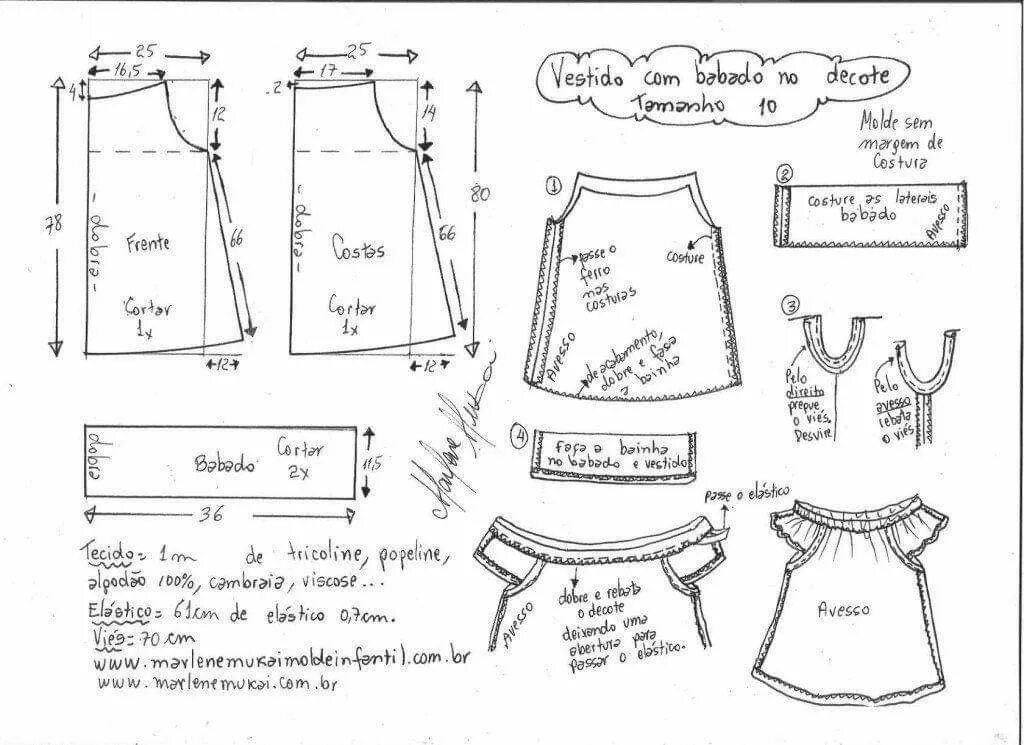 Vestido com babado no decote
Tamanho 10
Molde sem
margem de
Costura
25
16,5
4
12
78
- dobra -
Frente
Cortar
1x
66
12
25
17
2
14
80
- dobra -
Costas
Cortar
1x
66
12
dobra
Babado
Cortar
2x
11,5
36
Tecido = 1m de tricoline, popeline,
algodão 100%, cambraia, viscose...
Elástico = 61cm de elástico 0,7cm.
Viés = 70 cm
www.marlenemukaimoldeinfantil.com.br
www.marlenemukai.com.br
1
passe o
ferro
nas
costuras
costure
Avesso
deacabamento,
dobre e faça
a bainha
2
costure as laterais
babado
Avesso
3
Pelo
direito
pregue
o viés.
Desvire
Pelo
avesso
rebata
o viés
4
faça a bainha
no babado e vestido
passe o elástico
Avesso
dobre e rebata
o decote
deixando uma
abertura para
passar o elástico.
Avesso